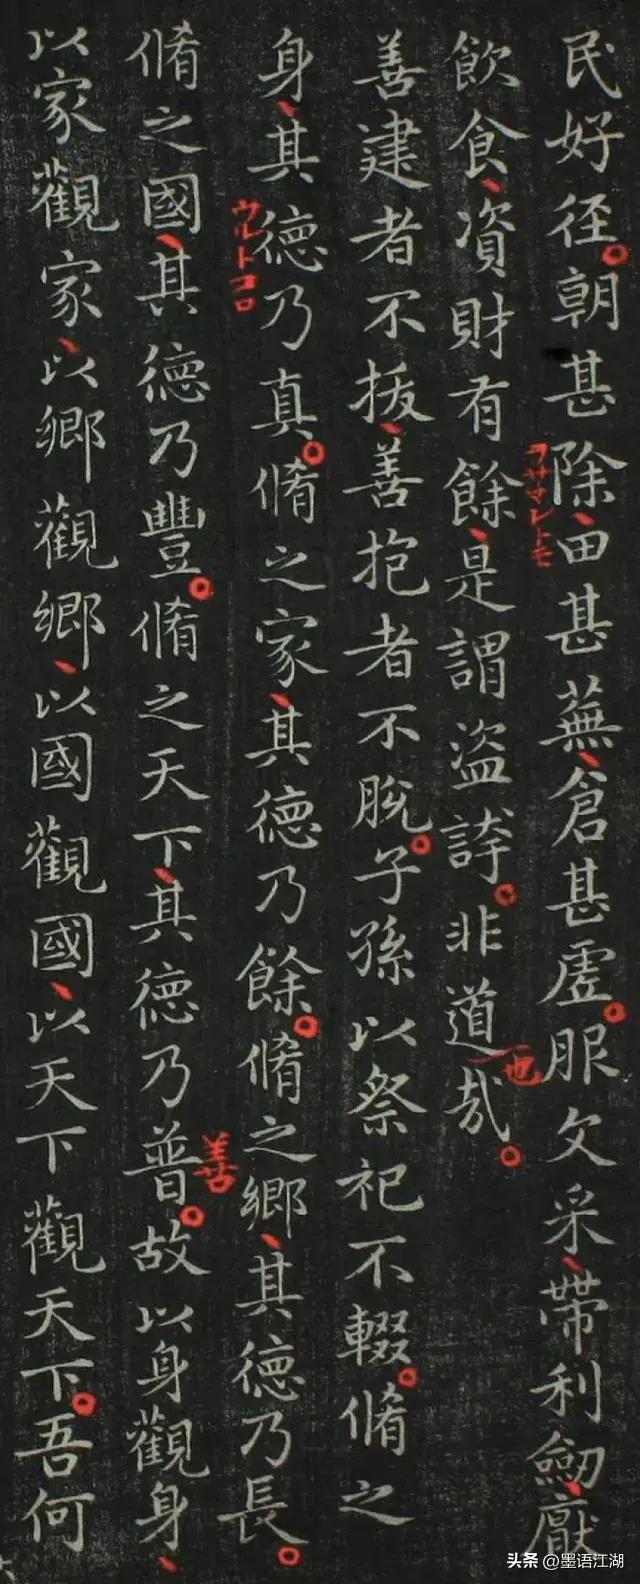 民好径。朝甚除、田甚蕪、倉甚虛。服文采、帶利劒、猒
飲食、資財有餘、是謂盜誇。非道哉。
ヲサマレトモ
也
善建者不拔、善抱者不脫。子孫以祭祀不輟。脩之
身、其德乃真。脩之家、其德乃餘。脩之鄉、其德乃長。
ウルトコロ
脩之國、其德乃豐。脩之天下、其德乃普。故以身觀身、
善
以家觀家、以鄉觀鄉、以國觀國、以天下觀天下。吾何
头条 @墨语江湖